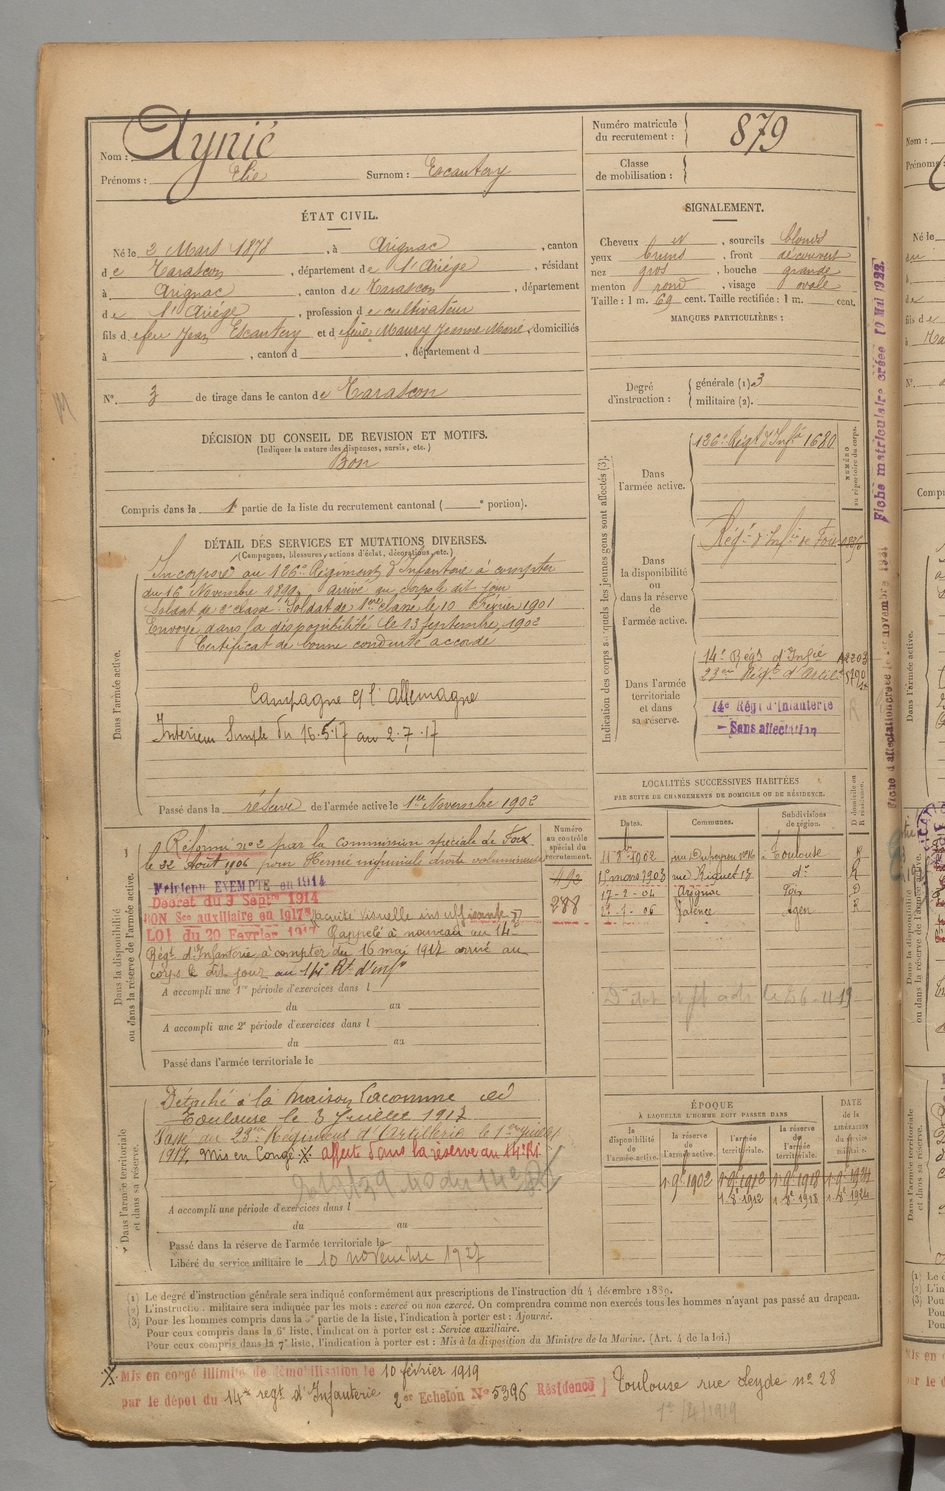 Nom : Aynié
Prénoms : Elie Surnom : Escautery
Numéro matricule du recrutement : 879
Classe de mobilisation :
ÉTAT CIVIL.
Né le 3 Mars 1878, à Arignac, canton
de Tarascon, département de l'Ariége, résidant
à Arignac, canton de Tarascon, département
de l'Ariége, profession de cultivateur
fils d efeu Jean Escautery et d efeue Maury Jeanne Marie, domiciliés
à , canton d , département d
N° 3 de tirage dans le canton de Tarascon
DÉCISION DU CONSEIL DE REVISION ET MOTIFS.
(Indiquer la nature des dispenses, sursis, etc.)
Bon
Compris dans la 1e partie de la liste du recrutement cantonal ( e portion).
SIGNALEMENT.
Cheveux et , sourcils blonds
yeux bruns , front découvert
nez gros , bouche grande
menton rond , visage ovale
Taille : 1 m. 69 cent. Taille rectifiée : 1 m. cent.
MARQUES PARTICULIÈRES :
Degré d'instruction : générale (1). 3
militaire (2).
Indication des corps auxquels les jeunes gens sont affectés (3).
NUMÉRO au répertoire du corps.
Dans l'armée active. 126e Régt d'Infie 1680
Dans la disponibilité ou dans la réserve de l'armée active. Régt d'Infie de Foix
Dans l'armée territoriale et dans sa réserve. 14e Régt d'Infie
23me Régt d'Artil
14e Régt d'Infanterie
— Sans affectation
Fiche matriculaire créée 10 Mai 1922.
DÉTAIL DES SERVICES ET MUTATIONS DIVERSES.
(Campagnes, blessures, actions d'éclat, décorations, etc.)
Dans l'armée active.
Incorporé au 126e Régiment d'Infanterie à compter
du 16 Novembre 1899, arrivé au corps le dit jour
Soldat de 2e classe. Soldat de 1ère classe le 10 Février 1901
Envoyé dans la disponibilité le 13 septembre 1902
Certificat de bonne conduite accordé
Campagne c/ l'Allemagne
Interieur Simple du 16.5.17 au 2.7.17
Passé dans la réserve de l'armée active le 1er Novembre 1902
Dans la disponibilité ou dans la réserve de l'armée active.
Réformé n° 2 par la Commission spéciale de Foix
le 22 Août 1906 pour Hernie inguinale droite volumineuse
Maintenu EXEMPTE en 1914
Décret du 9 Septre 1914
BON Sce auxiliaire en 1917 acuité visuelle insuffisante
LOI du 20 Fevrier 1917 Rappelé à nouveau au 14e
Régt d'Infanterie à compter du 16 mai 1917 arrivé au
corps le dit jour au 14e Rt d'inf.
Numéro au contrôle spécial du recrutement.
492
288
A accompli une 1re période d'exercices dans l
du au
A accompli une 2e période d'exercices dans l
du au
Passé dans l'armée territoriale le
LOCALITÉS SUCCESSIVES HABITÉES
PAR SUITE DE CHANGEMENTS DE DOMICILE OU DE RÉSIDENCE.
Dates. Communes. Subdivisions de région. D domicile ou R résidence.
11-8-1902 Toulouse R
15 mars 1903 rue Riquet 17 do R
17-2-04 Arignac Foix D
Valence Agen R
Dans l'armée territoriale et dans sa réserve.
Détaché à la maison Lacomme à
Toulouse le 3 Juillet 1917
Passé au 23me Régiment d'Artillerie le 1er Juillet
1917. Mis en Congé ※ affecté dans la réserve au 14e R.I.
A accompli une période d'exercices dans l
du au
Passé dans la réserve de l'armée territoriale le
Libéré du service militaire le 10 novembre 1927
ÉPOQUE
A LAQUELLE L'HOMME DOIT PASSER DANS
DATE de la LIBÉRATION du service militaire.
la disponibilité de l'armée active. la réserve de l'armée active. l'armée territoriale. la réserve de l'armée territoriale.
1 9e 1902 1 9e 1912 1 9e 1918 1 9e 1924
1 8e 1912 1 8e 1918 1 8e 1924
(1) Le degré d'instruction générale sera indiqué conformément aux prescriptions de l'instruction du 4 décembre 1889.
(2) L'instruction militaire sera indiquée par les mots : exercé ou non exercé. On comprendra comme non exercés tous les hommes n'ayant pas passé au drapeau.
(3) Pour les hommes compris dans la 5e partie de la liste, l'indication à porter est : Ajourné.
Pour ceux compris dans la 6e liste, l'indication à porter est : Service auxiliaire.
Pour ceux compris dans la 7e liste, l'indication à porter est : Mis à la disposition du Ministre de la Marine. (Art. 4 de la loi.)
※ Mis en congé illimité de démobilisation le 10 février 1919
par le dépot du 14e regt d'Infanterie 2er Echelon N° 5396 Résidence ) Toulouse rue Leyde n° 28